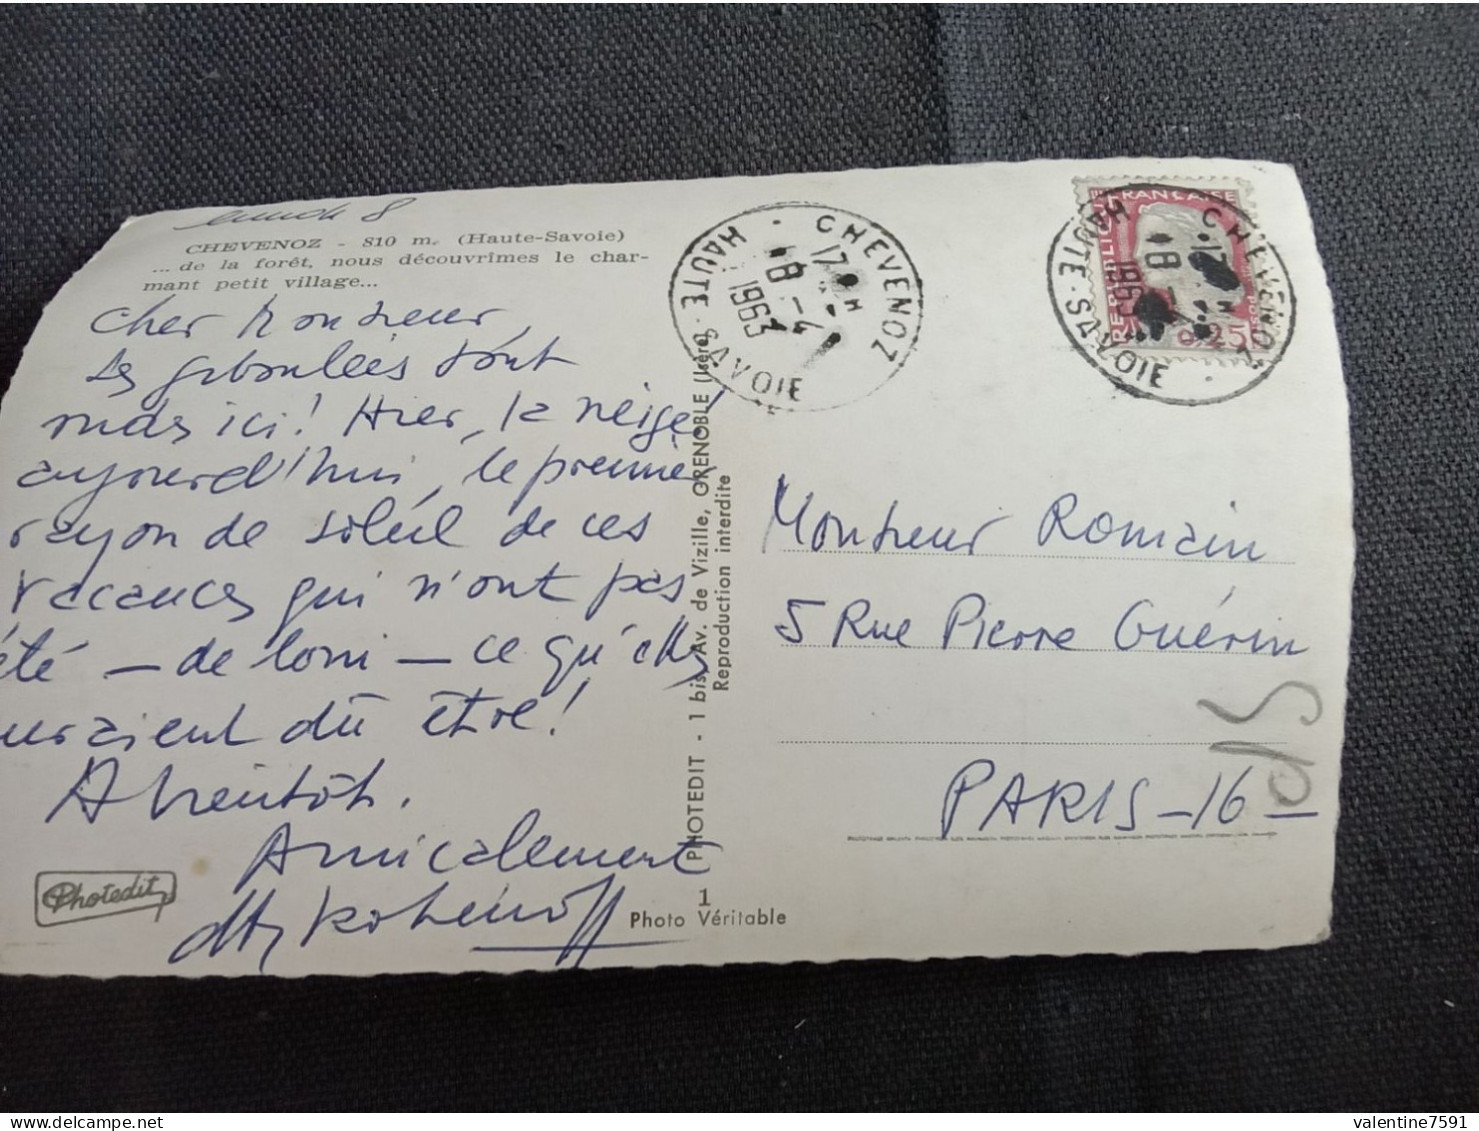 lundi 8
CHEVENOZ - 810 m. (Haute-Savoie)
... de la forêt, nous découvrîmes le char-
mant petit village...
Cher Monsieur,
Les giboulées sont
rudes ici! Hier, la neige!
aujourd'hui, le premier
rayon de soleil de ces
vacances qui n'ont pas
été — de loin — ce qu'elles
auraient dû être!
A bientôt.
Amicalement
Photedit
PHOTEDIT - 1 bis, Av. de Vizille, GRENOBLE (Isère)
Reproduction interdite
1
Photo Véritable
CHEVENOZ
HAUTE-SAVOIE
17H
8-4
1963
CHEVENOZ
HAUTE-SAVOIE
17H
8-4
1963
REPUBLIQUE FRANÇAISE
0,25
POSTES
Monsieur Romain
5 Rue Pierre Guérin
PARIS-16
valentine7591